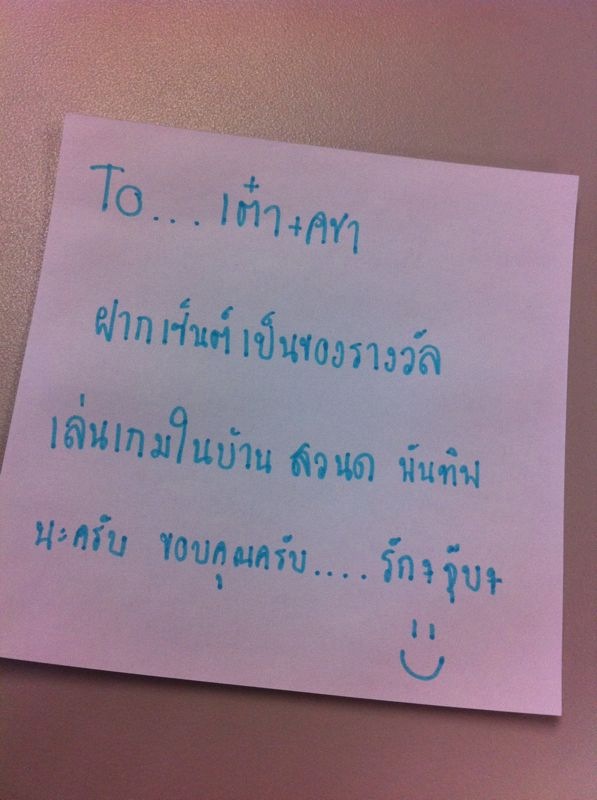 To... เต๋า+คชา
ฝากเซ็นต์เป็นของรางวัล
เล่นเกมในบ้าน สวนด พันทิพ
นะครับ ขอบคุณครับ.... รัก+จุ๊บ+